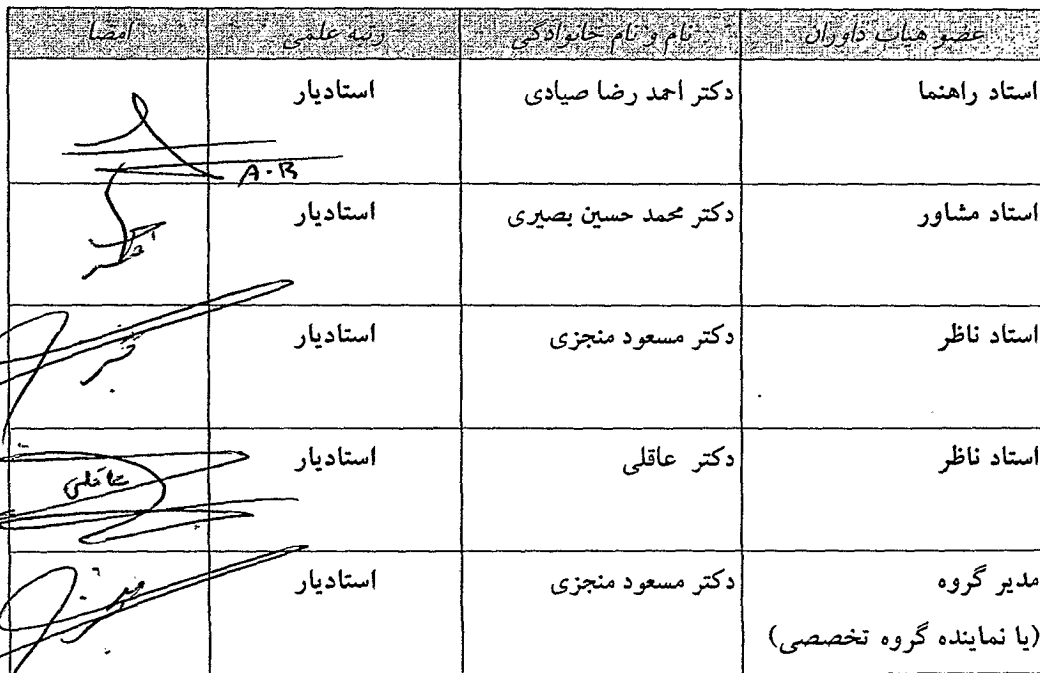 عضو هیات داوران نام و نام خانوادگی رتبه علمی امضا
استاد راهنما دکتر احمد رضا صیادی استادیار
A-B
استاد مشاور دکتر محمد حسین بصیری استادیار
استاد ناظر دکتر مسعود منجزی استادیار
استاد ناظر دکتر عاقلی استادیار
عاقلی
مدیر گروه دکتر مسعود منجزی استادیار
(یا نماینده گروه تخصصی)